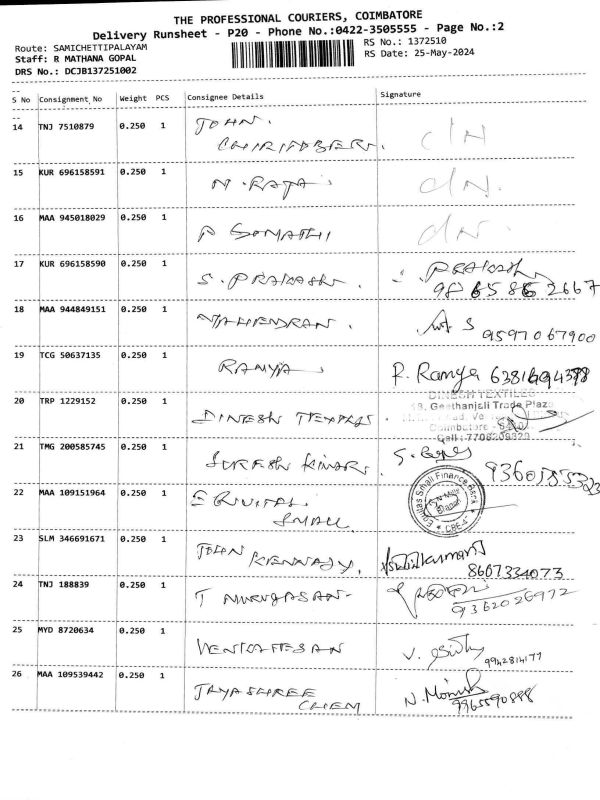 THE PROFESSIONAL COURIERS, COIMBATORE
Delivery Runsheet - P20 - Phone No.:0422-3505555 - Page No.:2
Route: SAMICHETTIPALAYAM
RS No.: 1372510
Staff: R MATHANA GOPAL
RS Date: 25-May-2024
DRS No.: DCJB137251002
S No Consignment_No Weight PCS Consignee Details Signature
14 TNJ 7510879 0.250 1 JOHN.
15 KUR 696158591 0.250 1 N. RAJA
16 MAA 945018029 0.250 1 P GOMATHI
17 KUR 696158590 0.250 1 S. PRAKASH. PRAKASH
18 MAA 944849151 0.250 1 MAHENDRAN. S 9597067900
19 TCG 50637135 0.250 1 RAMYA R. Ramya
20 TRP 1229152 0.250 1 DINESH DINESH TEXTILES
Geethanjali Trade Plaza
Coimbatore
Cell: 7708209329
21 TMG 200585745 0.250 1 SURESH KUMAR. S.
22 MAA 109151964 0.250 1 Equitas Small Finance Bank
SMALL
23 SLM 346691671 0.250 1 JOHN KENNADY.
8607334073
24 TNJ 188839 0.250 1 T MURUGASAN
9362026972
25 MYD 8720634 0.250 1 VENKATESAN V.
9942814177
26 MAA 109539442 0.250 1 JAYASHREE N.
CHEM 9965590898